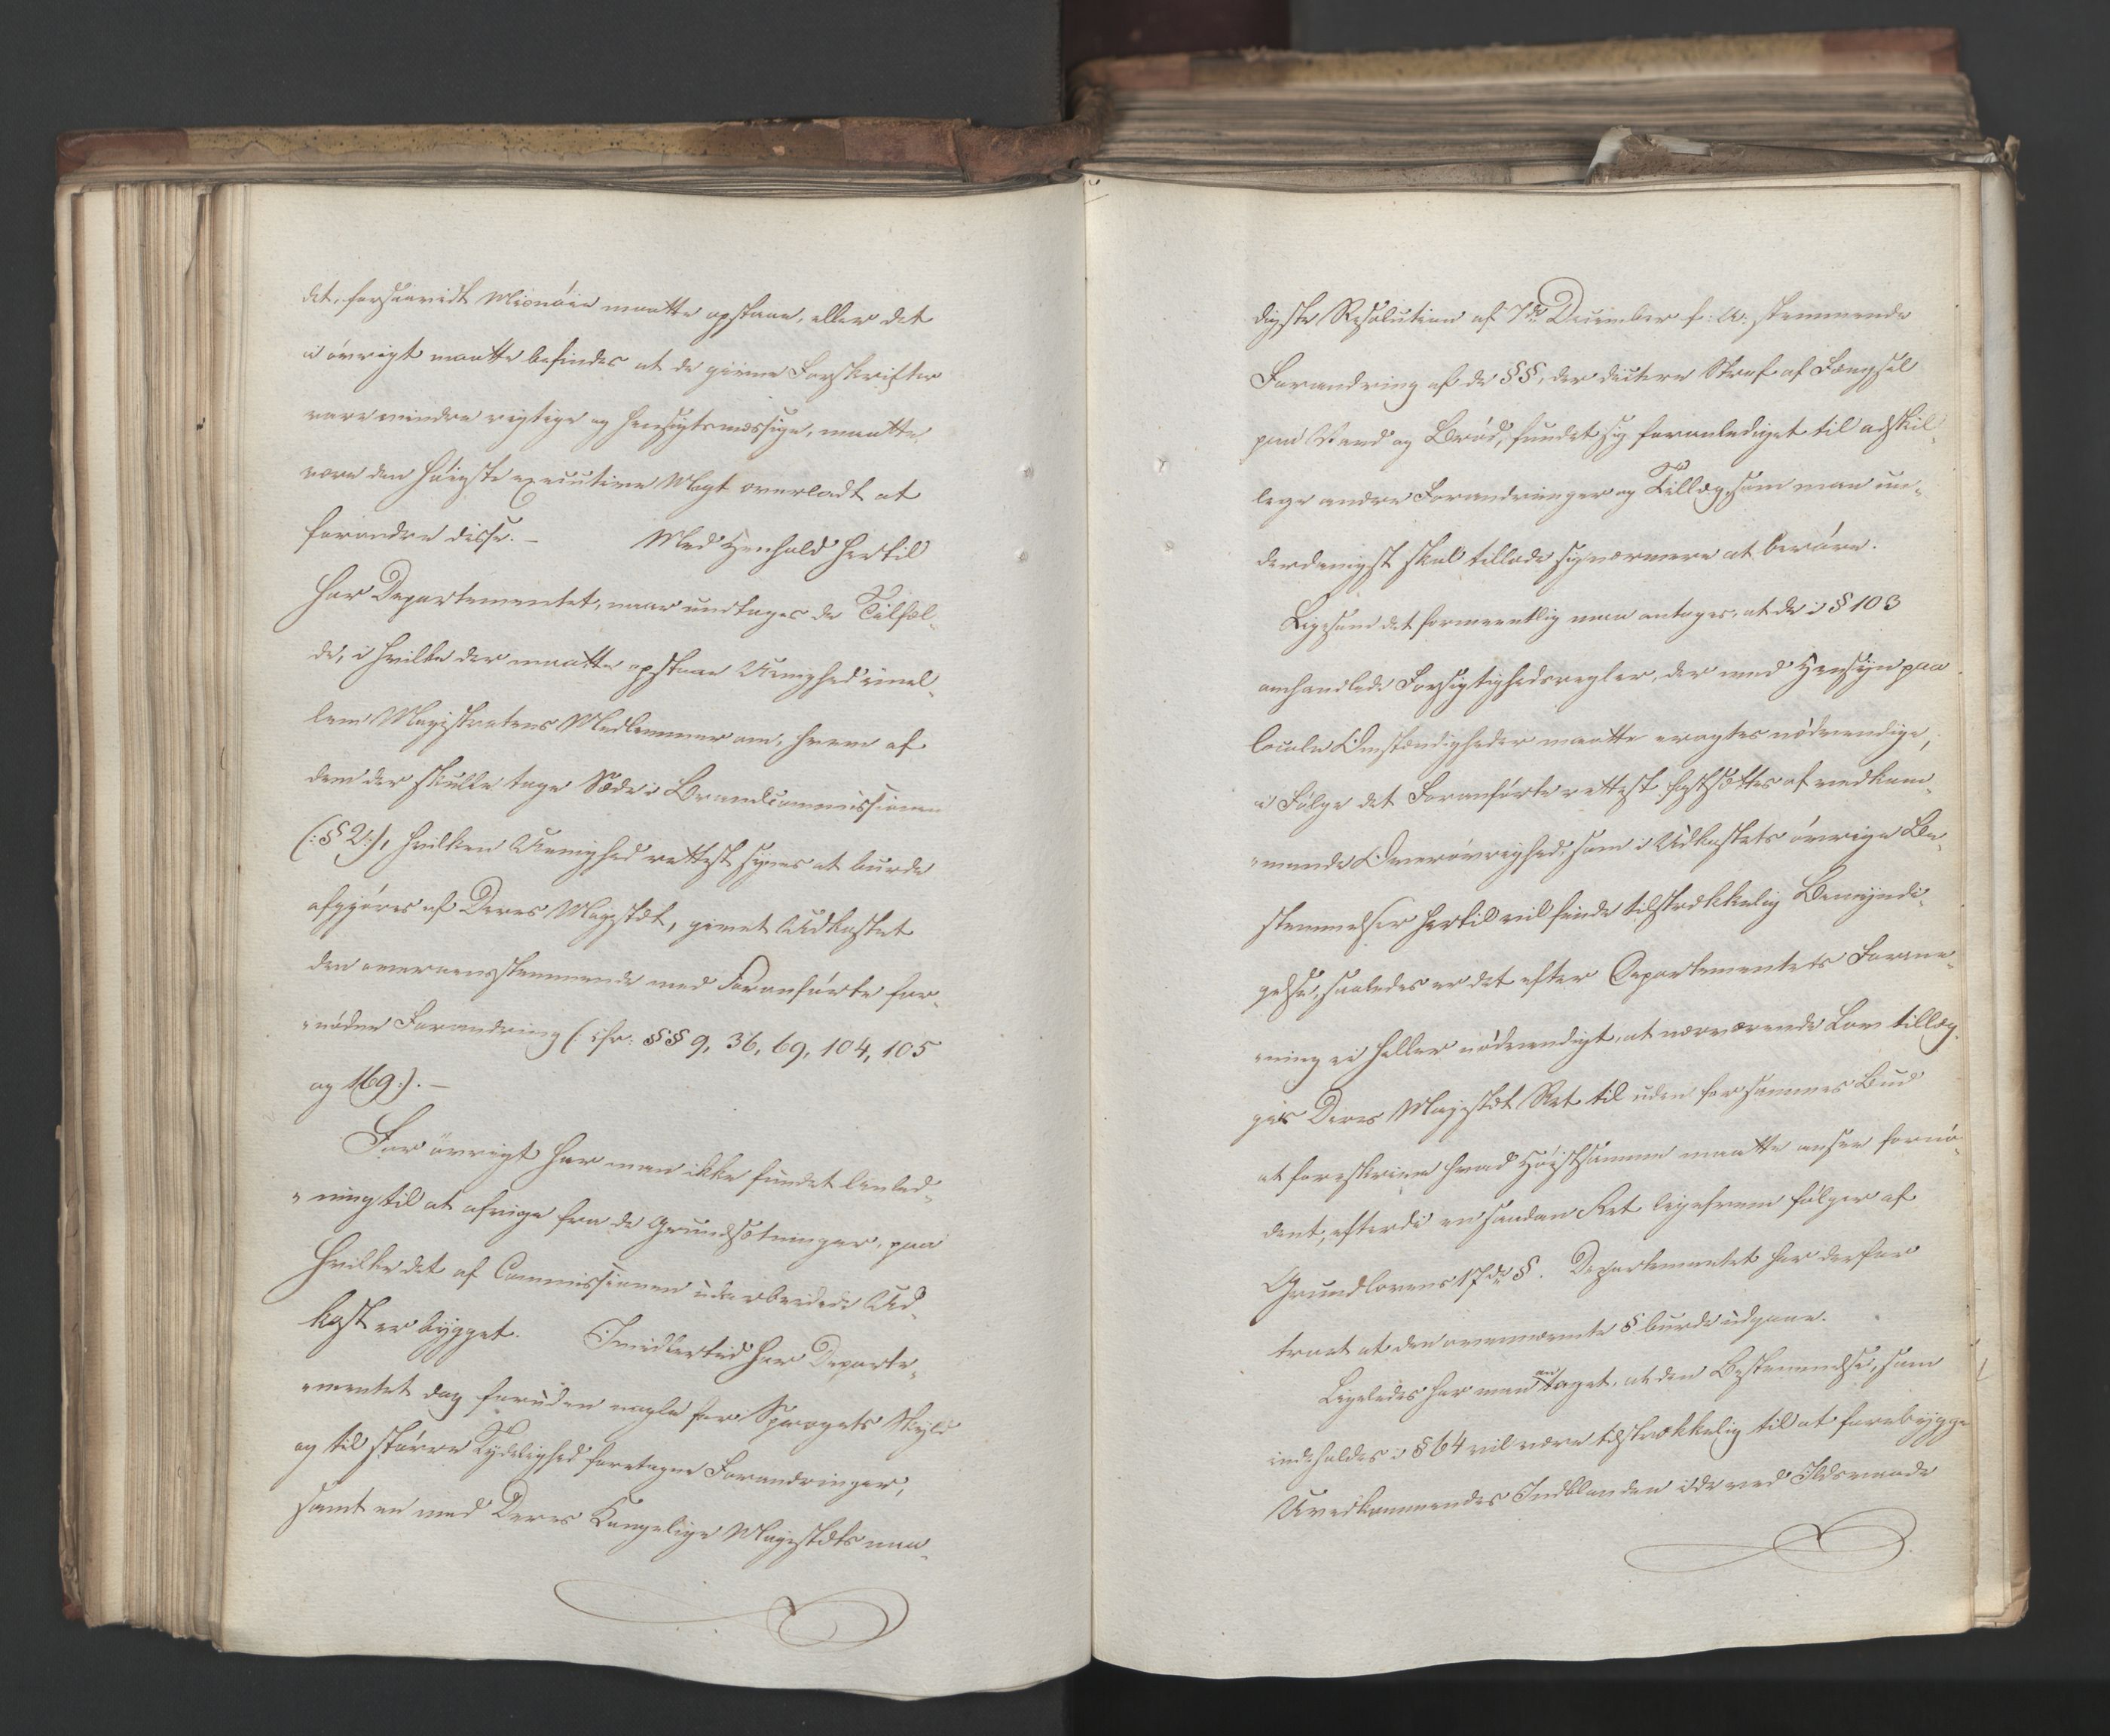 det, forsaavidt Misnöie maatte opstaae, eller det
i övrigt maatte befindes at de givne Forskrifter
vare mindre rigtige og hensigtsmæssige, maatte
være den höieste executive Magt overladt at
forandre disse. – Med Henhold hertil
har Departementet, naar undtages de Tilfæl-
de, i hvilke der maatte opstaae Uenighed imel-
lem Magistratens Medlemmer om, hvem af
dem der skulle tage Sæde i Brandcommissionen
(: § 2 :), hvilken Uenighed rettest synes at burde
afgjöres af Deres Majestæt, givet Udkastet
den overeensstemmende med Foranförte for-
nödne Forandring (: cfr: §§ 9, 36, 69, 104, 105
og 169 :). –
For övrigt har man ikke fundet Anled-
ning til at afvige fra de Grundsætninger, paa
hvilke det af Commissionen udarbeidede Ud-
kast er bygget. Imidlertid har Departe-
mentet dog foruden nogle for Sprogets Skyld
og til större Tydelighed foretagne Forandringer,
samt en med Deres Kongelige Majestæts naa-
digste Resolution af 7de December f: A: stemmende
Forandring af de §§, der dictere Straf af Fængsel
paa Vand og Bröd, fundet sig foranlediget til adskil-
lige andre Forandringer og Tillæg, som man un-
derdanigst skal tillade sig nærmere at beröre.
Ligesom det formeentlig maa antages, at de i § 103
omhandlede Forsigtighedsregler, der med Hensyn paa
locale Omstændigheder maatte eragtes nödvendige,
i Fölge det Foranförte rettest fastsættes af vedkom-
mende Överövrighed, som i Udkastets övrige Be-
stemmelser hertil vil finde tilstrækkelig Bemyndi-
gelse, saaledes er det efter Departementets Forme-
ning ei heller nödvendigt, at nærværende Lov tillæg-
ges Deres Majestæt Ret til uden for sammes Bud
at foreskrive hvad Höistsamme maatte ansee fornö-
dent, efterdi en saadan Ret ligefrem fölger af
Grundlovens 17de §. Departementet har derfor
troet at den ovennævnte § burde udgaae.
Ligeledes har man antaget, at den Bestemmelse, som
indeholdes i § 64 vil være tilstrækkelig til at forebygge
Uvedkommendes Indblanden i de ved Ildsvaade